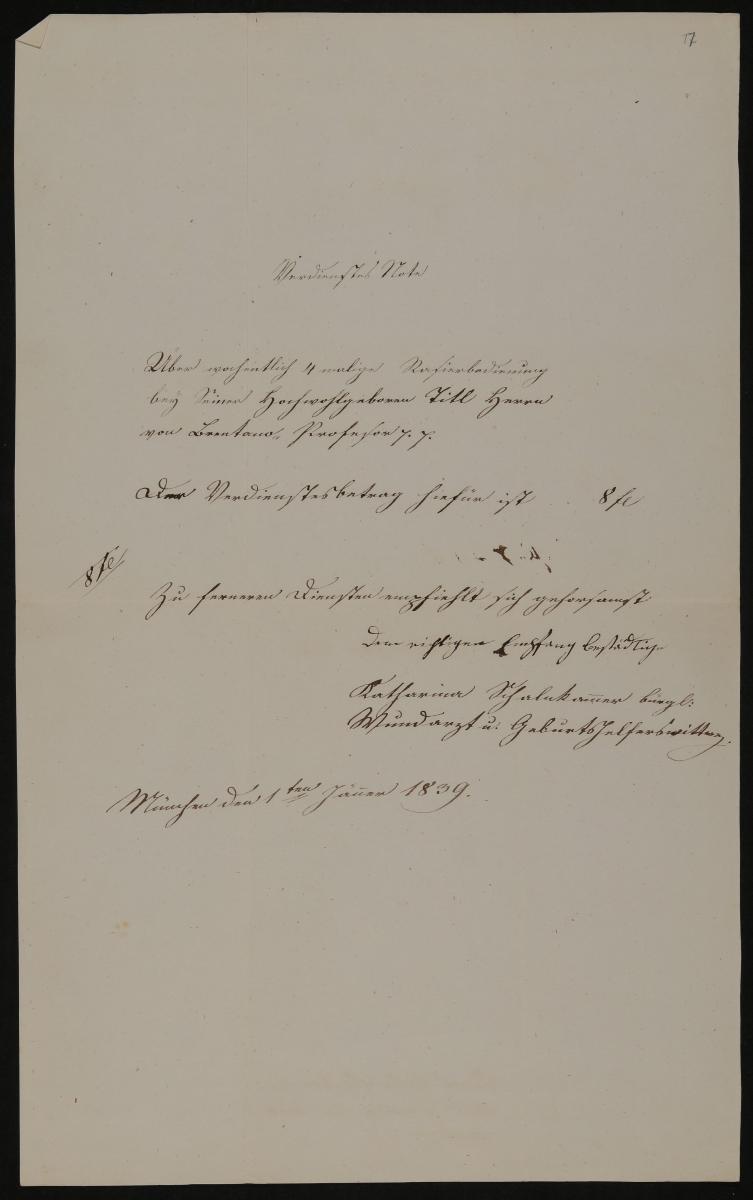 17
Verdienstes Note
Über wochentlich 4 malige Rasierbedienung
bey Seiner Hochwohlgeboren Titl Herrn
von Brentano, Profesor p. p.
Der Verdienstesbetrag hiefür ist 8 fl
8 fl
Zu ferneren Diensten empfiehlt sich gehorsamst
dem richtigen Empfang bestädtige
Katharina Schalnkamer bürgl:
Wundarzt u: Geburtshelferswittwe.
München den 1ten Jäner 1839.